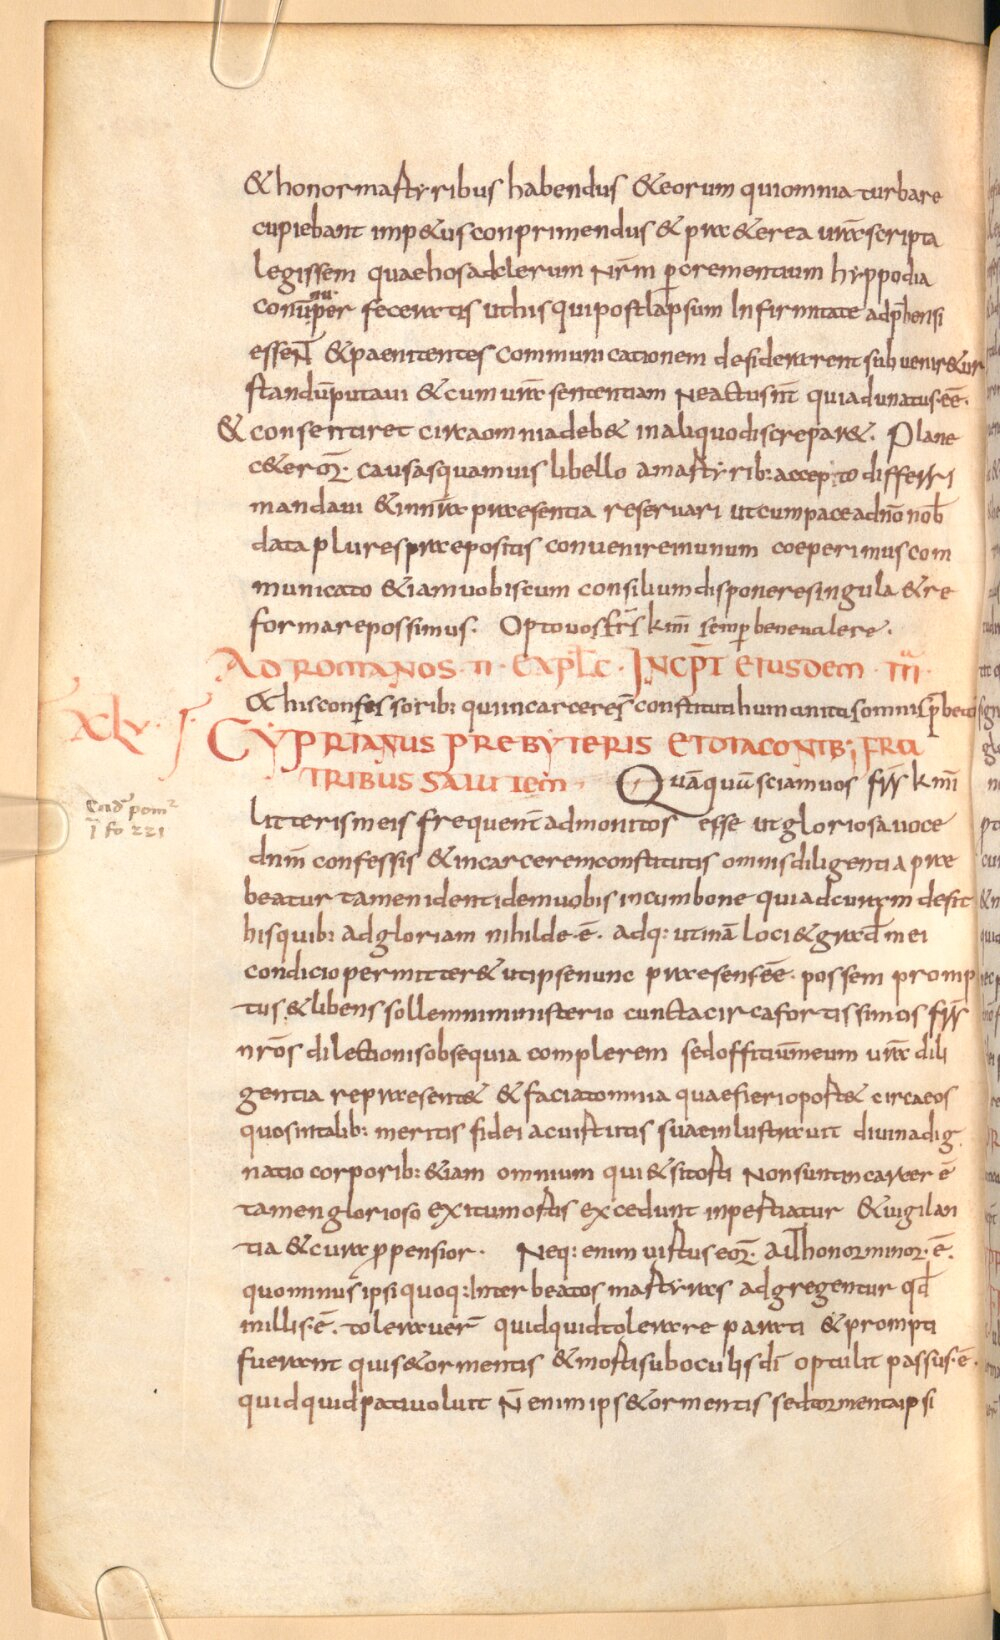 & honor martyribus habendus & eorum qui omnia turbare
cupiebant imp&us conprimendus & prae&erea ur̄a scripta
legissem quae hos ad clerum nr̄m p crementium hyppodia
conū nuper feceratis ut his qui post lapsum Infirmitate adp̄hensi
essen̄t & paenitentes communicationem desiderarent subuenir&ur
standū putaui & cum urā sententiam Ne actus nr̄ qui adunatus·ēē·
& consentiret circa omnia deb& in aliquo discrepar&. Plane
c&eroꝝ· causas quamuis libello a martyrib: accepto differri
mandaui & in nr̄a praesentia reseruari ut cum pace a dn̄o nob̄
data plures praepositis conuenire in unum coeperimus com
municato & iam uobiscum consilium disponere singula & re
formare possimus. Opto uos fr̄s k̄mi semp bene ualere.
AD ROMANOS · II · EXPLC · INCPT EIUSDEM · III ·
& his confessorib: qui in carcere s̄ constituti humanitas omnis p̄beatur
XLV
CYPRIANUS PREBYTERIS ET DIACONIB; FRA
TRIBUS SALUTEM · Quāquū sciam uos fr̄s k̄mi
Cud' pom²
ī fo 221
litteris meis frequent̄ admonitos esse ut gloriosa uoce
dnm̄ confessis & in carcerem constitutis omnis diligentia prae
beatur tamen identidem uobis incumbo ne quid ad curam desit
his quib: ad gloriam nihil de·ē· adq: utinā loci & grad̄ mei
condicio permitter& ut ipse nunc praesens·ēē· possem promp
tus & libens sollemni ministerio cuncta circa fortissimos fr̄s
nr̄os dilectionis obsequia complerem sed offitiū meum ur̄a dili
gentia repraesent& & faciat omnia quae fieri oport& circa eos
quos in talib: meritis fidei ac uirtutis suae inlustrauit diuina dig
natio corporib: &iam omnium qui & si torti Non sunt in carcer ē
tamen glorioso exitu mortis excedunt inpertiatur & uigilan
tia & cura ppensior. Neq: enim uirtus eoꝝ· aut honor minor·ē·
quominus ipsi quoq: Inter beatos martyras adgregentur qd̄
in illis·ē· tolerauer̄ quidquid tolerare parati & prompti
fuerant qui se tormentis & morti sub oculis dī optulit passus·ē·
quidquid pati uoluit n̄ enim ipse tormentis sed tormenta ipsi